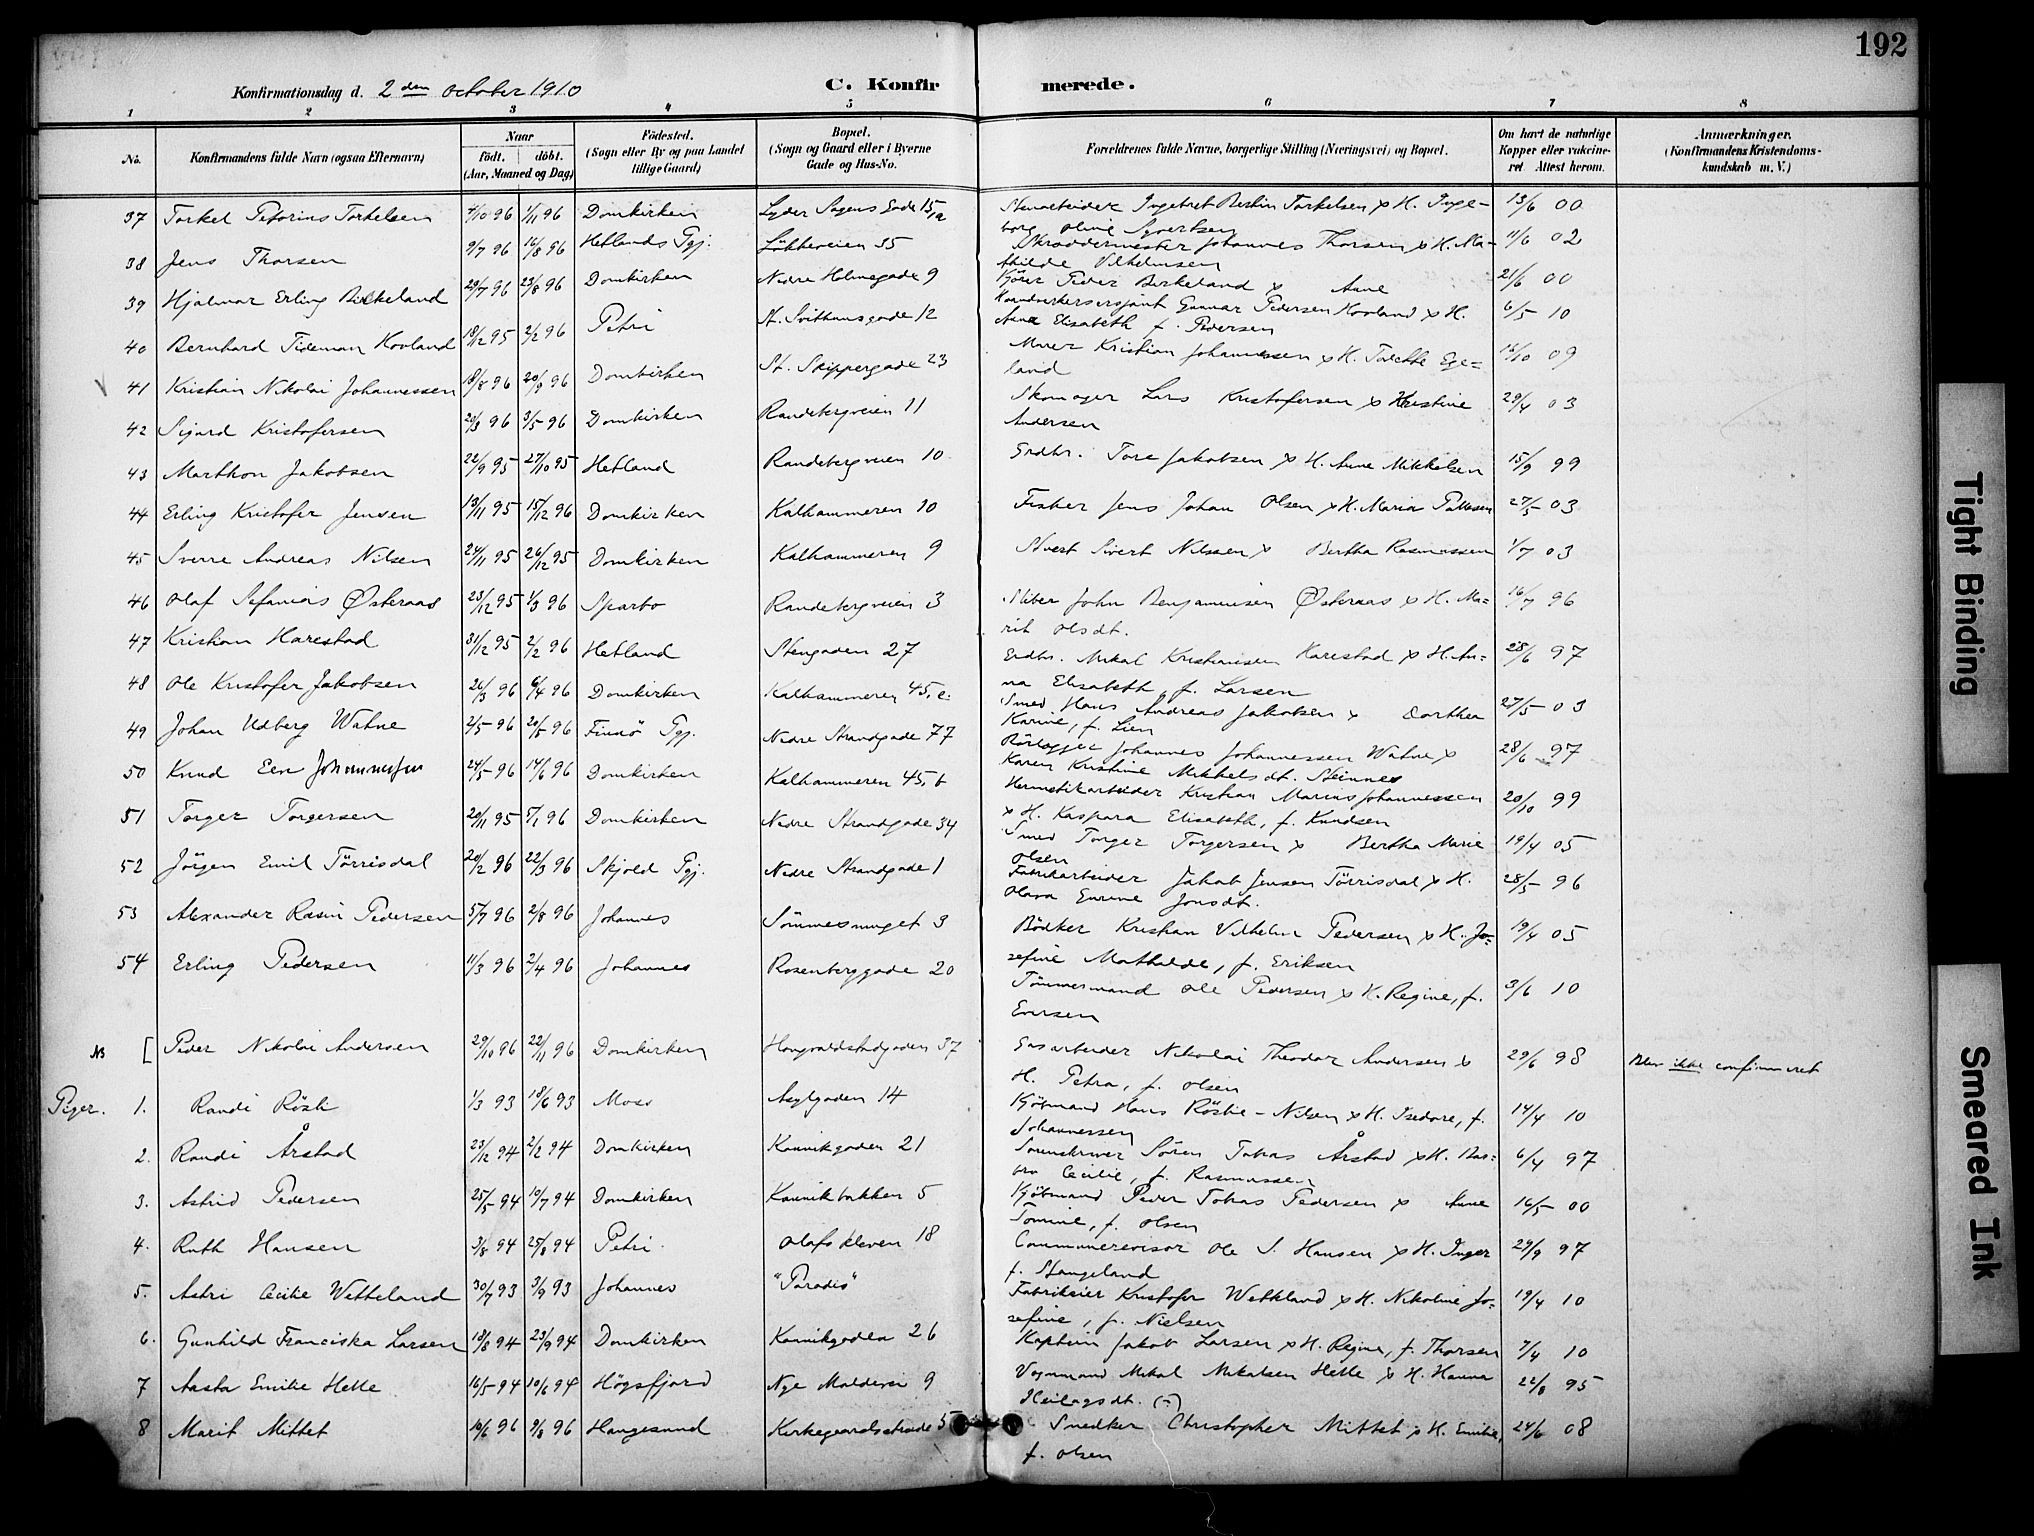 192
Konfirmationsdag d. 2 den october 1910
C. Konfirmerede.
1 2 3 4 5 6 7 8
No.
Konfirmandens fulde Navn (ogsaa Efternavn)
Naar
födt. döbt.
(Aar, Maaned og Dag)
Födested.
(Sogn eller By og paa Landet
tillige Gaard)
Bopæl.
(Sogn og Gaard eller i Byerne
Gade og Hus-No.
Forældrenes fulde Navne, borgerlige Stilling (Næringsvei) og Bopæl.
Om havt de naturlige
Kopper eller vakcine-
ret Attest herom.
Anmærkninger.
(Konfirmandens Kristendoms-
kundskab m. V.)
37 Torkel Petorius Torkelsen 4/10 96 1/11 96 Domkirken Lyder Sagens Gade 15,a Ingebret Berlin Torkelsen x H. Inge- 13/6 00
borg Oline Syvertsen
38 Jens Thorsen 9/7 96 16/8 96 Hetlands Pgj. Løkkeveien 35 Skræddermester Johannes Thorsen x H. Ma- 11/6 02
thilde Vilhelmsen
39 Hjalmar Erling Birkeland 29/7 96 23/8 96 Domkirken Nedre Holmegade 9 Kjører Peder Birkeland x Anne 21/6 00
40 Bernhard Tideman Hovland 18/12 95 2/2 96 Petri St. Svithunsgade 12 Gunnar Pedersen Hovland x H. 6/5 10
Anna Elisabeth f. Pedersen
41 Kristian Nikolai Johannessen 18/8 96 20/9 96 Domkirken St. Skippergade 23 Murer Kristian Johannessen x H. Tolette Ege- 16/10 09
land
42 Sigurd Kristofersen 20/3 96 3/5 96 Domkirken Randebergveien 11 Skomager Lars Kristofersen x Kristine 29/4 03
Andersen
43 Marthon Jakobsen 22/9 95 27/10 95 Hetland Randebergveien 10 Erdbr. Tore Jakobsen x H. Anne Mikkelsen 15/9 99
44 Erling Kristofer Jensen 13/11 95 15/12 96 Domkirken Kalhammeren 10 Fisker Jens Johan Olsen x H. Maria Pallesen 27/5 03
45 Sverre Andreas Nilsen 24/11 95 26/12 95 Domkirken Kalhammeren 9 Sivert Nilssen x Bertha Rasmussen 1/7 03
46 Olaf Stefanius Østeraas 23/12 95 1/3 96 Sparbo Randebergveien 3 Sliber John Benjaminsen Østeraas x H. Ma- 16/7 96
rit Olsdt.
47 Kristian Harestad 31/12 95 2/2 96 Hetland Stengaden 27 Erdbr. Mikal Kristiansen Harestad x H. An- 28/6 97
na Elisabeth, f. Larsen
48 Ole Kristofer Jakobsen 26/3 96 6/4 96 Domkirken Kalhammeren 45,c. Smed Hans Andreas Jakobsen x Dorthea 27/5 03
Karine, f. Lien
49 Johan Udberg Watne 2/5 96 20/5 96 Finnø Pgj. Nedre Strandgade 77 Rørlægger Johannes Johannessen Watne x 28/6 97
Karen Kristine Mikkelsdt. Steinnes
50 Knud Johannessen 24/5 96 14/6 96 Domkirken Kalhammeren 45,b Hermetikarbeider Kristian Marius Johannessen 20/10 99
x H. Kaspara Elisabeth, f. Knudsen
51 Torger Torgersen 20/11 95 5/1 96 Domkirken Nedre Strandgade 34 Smed Torger Torgersen x Bertha Marie 19/4 05
Olsen
52 Jörgen Emil Törrisdal 20/2 96 22/3 96 Skjold Pgj. Nedre Strandgade 1 Fabrikarbeider Jakob Jensen Törrisdal x H. 28/5 96
Olava Jonsdt.
53 Alexander Rasin Pedersen 5/7 96 2/8 96 Johannes Sømmesmuget 3 Bödker Kristian Vilhelm Pedersen x H. Jo- 19/4 05
sefine Mathilde, f. Eriksen
54 Erling Pedersen 11/3 96 2/4 96 Johannes Rosenberggade 20 Tømmermand Ole Pedersen x H. Regine, f. 3/6 10
Eversen
NB [ Peder Nikolai Andersen 29/10 96 22/11 96 Domkirken Haugvaldstadgaden 37 Gasarbeider Nikolai Theodor Andersen x 29/6 98 Blev ikke confirmeret
H. Petra, f. Olsen
Piger. 1. Randi Røsli 1/3 93 18/6 93 Moss Asylgaden 14 Kjøbmand Hans Røslie-Nilsen x H. Isedore, f. 14/4 10
Johannessen
2. Randi Årstad 23/12 94 2/2 94 Domkirken Kannikgaden 21 Sorenskriver Søren Tobias Årstad x H. Bar- 6/4 97
bra Cecilie, f. Rasmussen
3. Astrid Pedersen 25/5 94 10/7 94 Domkirken Kannikbakken 5 Kjøbmand Peder Tobias Pedersen x Anne 16/5 00
Tomine, f. Olsen
4. Ruth Hansen 3/8 94 25/8 94 Petri Olafskleven 18 Communerevisor Ole S. Hansen x H. Inger 29/9 97
f. Stangeland
5. Astri Cecilie Wetteland 30/7 93 3/9 93 Johannes "Paradis" Fabrikeier Kristofer Wetteland x H. Nikoline Jo- 19/4 10
sefine, f. Nielsen
6. Gunhild Franciska Larsen 18/8 94 23/9 94 Domkirken Kannikgaden 26 Kaptein Jakob Larsen x H. Regine, f. Thorsen 7/4 10
7 Aasta Emilie Helle 16/5 94 10/6 94 Högsfjord Nye Maldevei 9 Vognmand Mikal Mikalsen Helle x H. Hanna 22/8 95
8 Marit Mittet 10/6 96 9/8 96 Haugesund Kirkegaardsstræde 5 Snedker Christopher Mittet x H. Emilie, 24/6 08
f. Olsen
Tight Binding
Smeared Ink